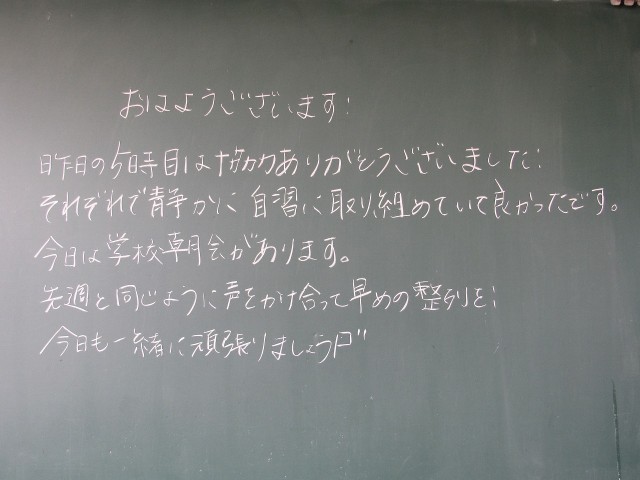 おはようございます!
昨日の5時目は協力ありがとうございました!
それぞれで静かに自習に取り組めていて良かったです。
今日は学校朝会があります。
先週と同じように声をかけ合って早めの整列を!
今日も一緒に頑張りましょう